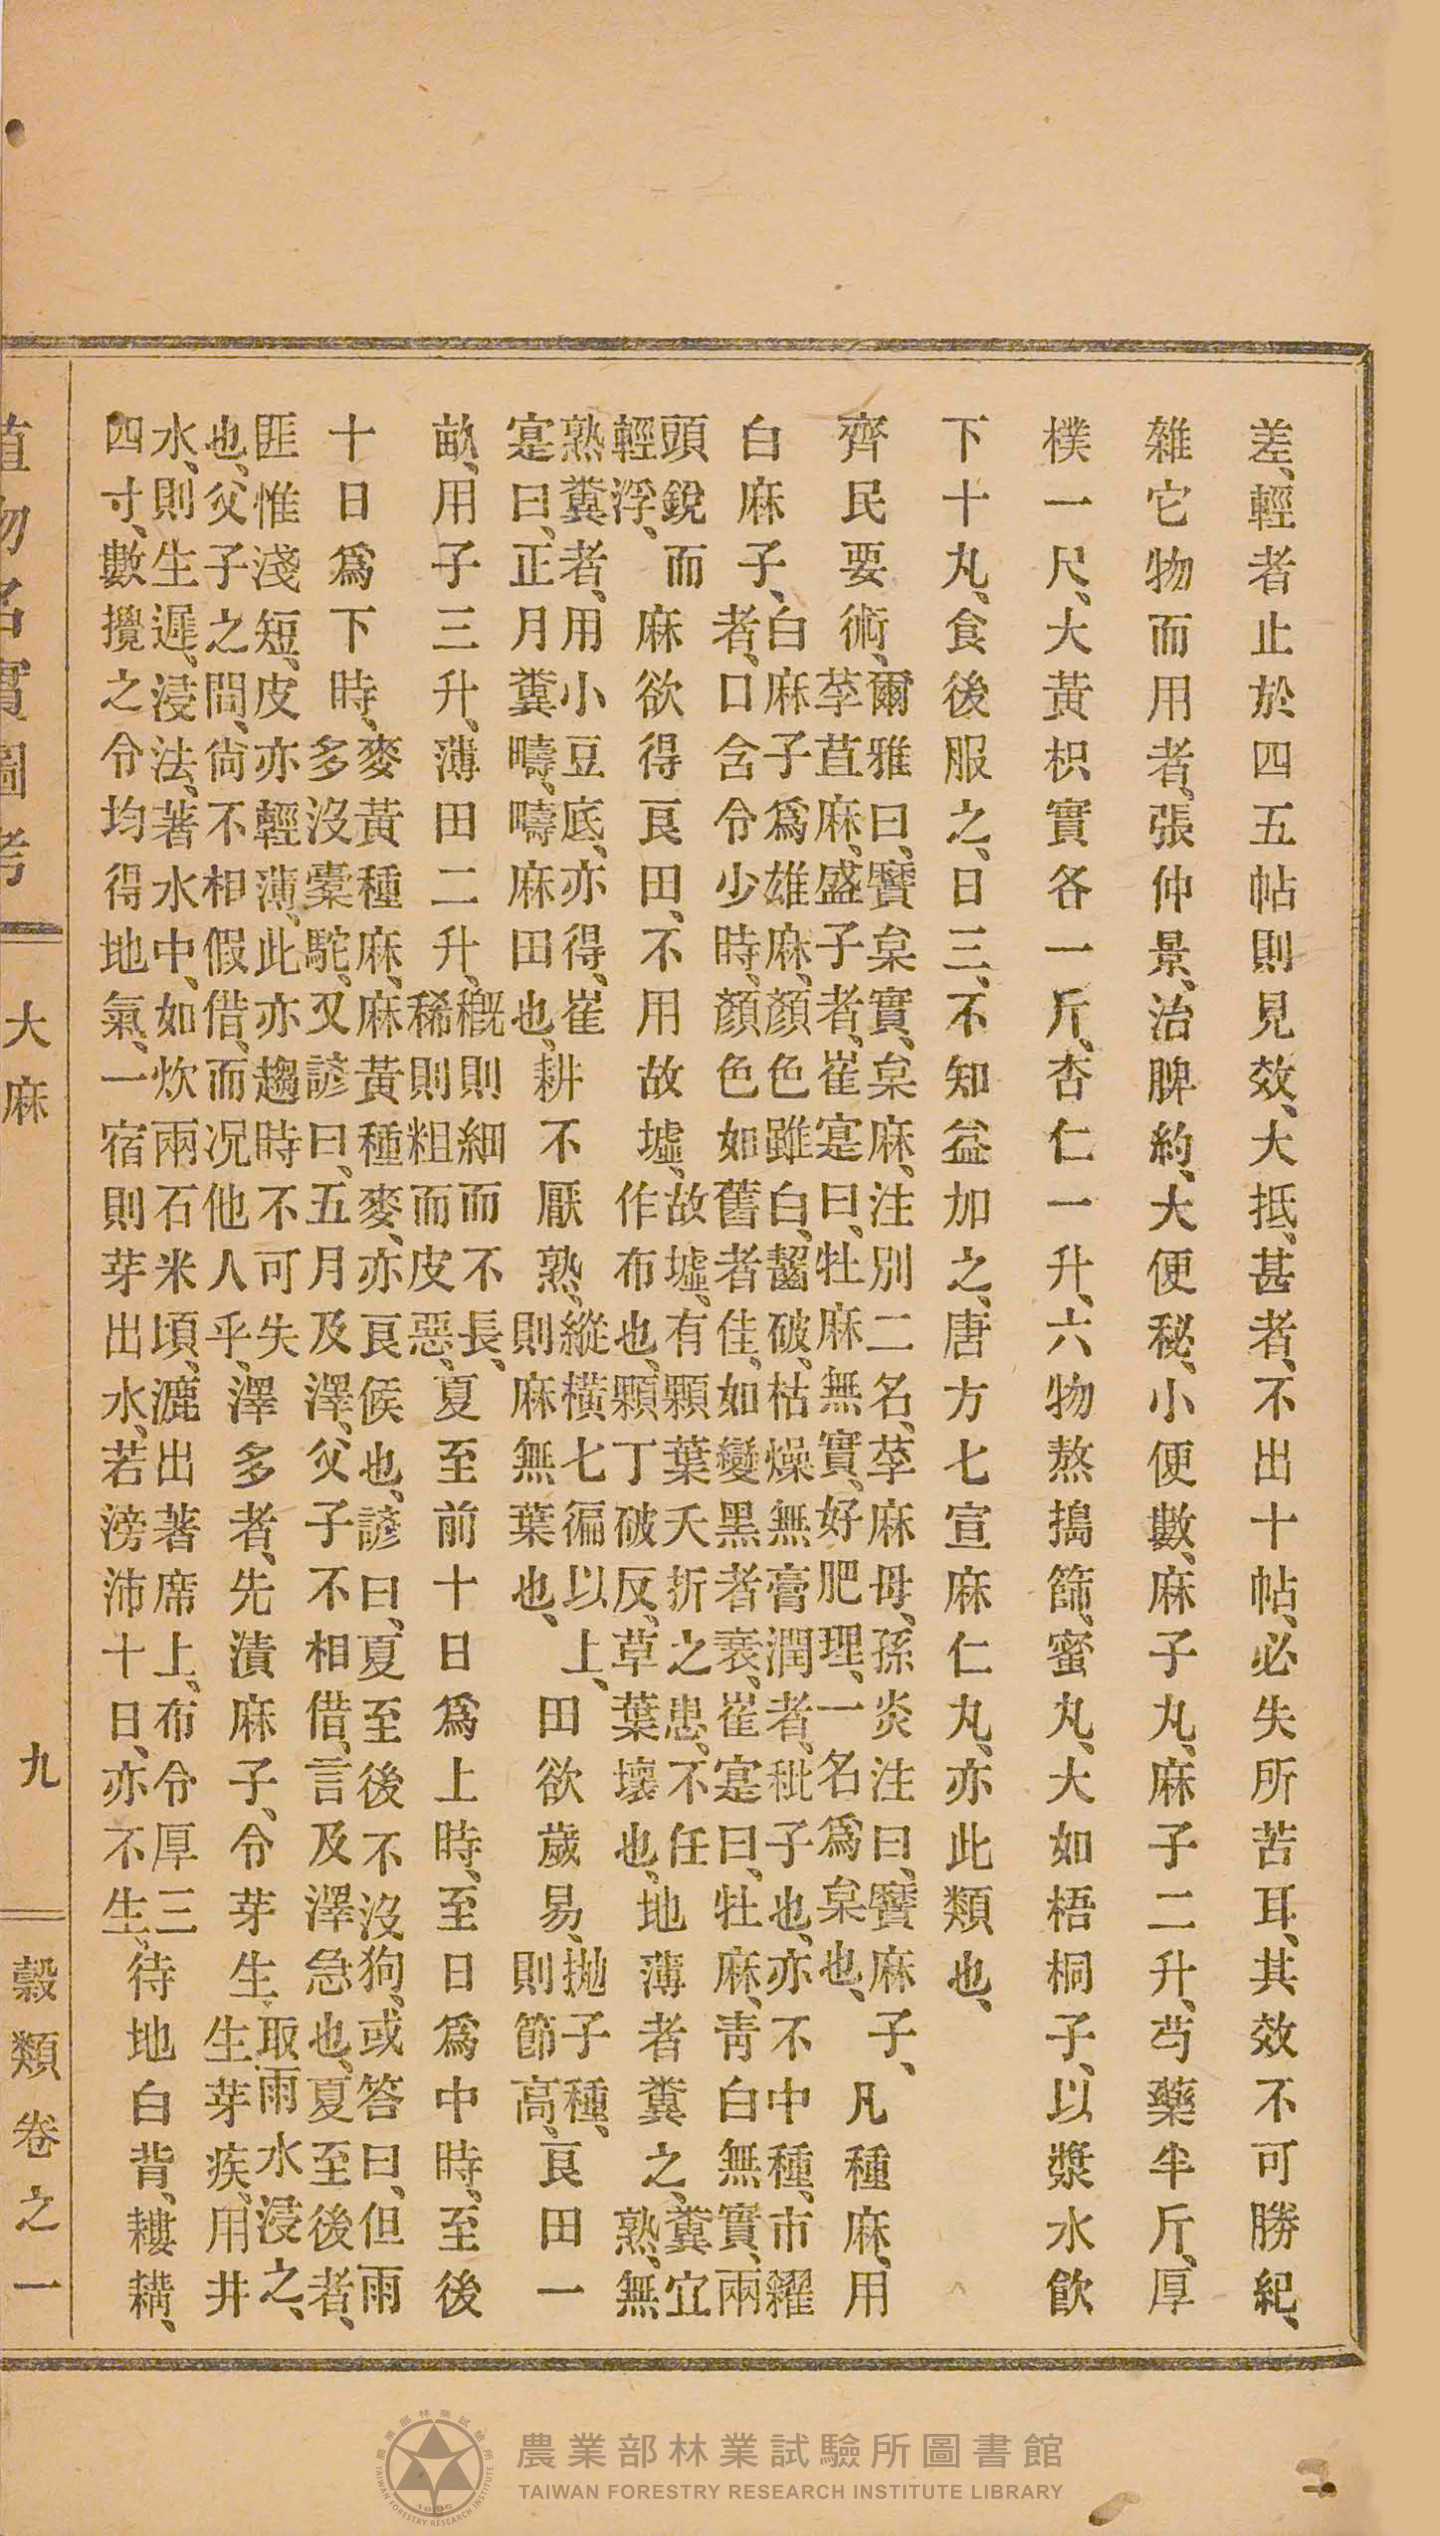 差、輕者止於四五帖則見效、大抵、甚者、不出十帖、必失所苦耳、其效不可勝紀、
雜它物而用者、張仲景、治脾約、大便秘、小便數、麻子丸、麻子二升、芍藥半斤、厚
樸一尺、大黃枳實各一斤、杏仁一升、六物熬搗篩、蜜丸、大如梧桐子、以漿水飲
下十丸、食後服之、日三、不知益加之、唐方七宣麻仁丸、亦此類也、
齊民要術、爾雅曰、黂枲實、枲麻、注別二名、莩麻母、孫炎注曰、黂麻子、莩苴麻、盛子者、崔寔曰、牡麻無實、好肥理、一名爲枲也、凡種麻、用
白麻子、白麻子爲雄麻、顏色雖白、齧破、枯燥無膏潤者、秕子也、亦不中種、市糴者、口含令少時、顏色如舊者佳、如變黑者裛、崔寔曰、牡麻、靑白無實、兩
頭銳而輕浮、麻欲得良田、不用故墟、故墟、有顆葉夭折之患、不任作布也、顆丁破反、草葉壞也、地薄者糞之、糞宜熟、無
熟糞者、用小豆底、亦得、崔寔曰、正月糞疇、疇麻田也、耕不厭熟、縱橫七徧以上、則麻無葉也、田欲歲易、拋子種、則節高、良田一
畝、用子三升、薄田二升、穊則細而不長、稀則粗而皮惡、夏至前十日爲上時、至日爲中時、至後
十日爲下時、麥黃種麻、麻黃種麥、亦良候也、諺曰、夏至後不沒狗、或答曰、但雨多沒橐駝、又諺曰、五月及澤、父子不相借、言及澤急也、夏至後者、
匪惟淺短、皮亦輕薄、此亦趨時不可失也、父子之間、尙不相假借、而况他人乎、澤多者、先漬麻子、令芽生、取雨水浸之、生芽疾、用井
水、則生遲、浸法、著水中、如炊兩石米頃、漉出著席上、布令厚三四寸、數攪之令均得地氣、一宿則芽出水、若滂沛十日、亦不生、待地白背、耬耩、
植物名實圖考 大麻 九 穀類卷之一
農業部林業試驗所圖書館
TAIWAN FORESTRY RESEARCH INSTITUTE LIBRARY